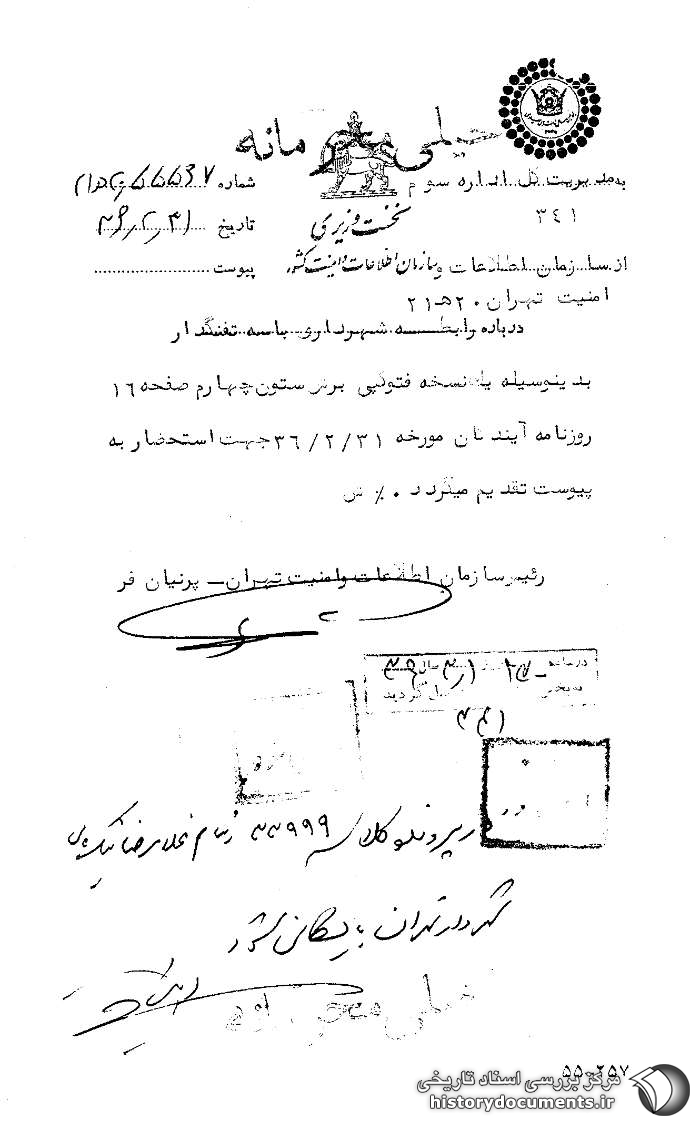 خیلی محرمانه
به مدیریت کل اداره سوم
۳٤۱
نخست وزیری
سازمان اطلاعات و امنیت کشور
شماره
تاریخ
پیوست
از سازمان اطلاعات و
امنیت تهران ۲۰هـ۲۱
درباره رابطه شهرداری با سه تفنگدار
بدینوسیله یک نسخه فتوکپی برش ستون چهارم صفحه ۱۶
روزنامه آیندگان مورخه ۳۶/۲/۳۱ جهت استحضار به
پیوست تقدیم میگردد ۰٪ ش
رئیس سازمان اطلاعات و امنیت تهران – پرنیان فر
در پرونده کلاسه ۳۳۹۹۹ بنام غلامرضا نیک پی
شهردار تهران بایگانی شود
خیلی محرمانه
۵۵-۲۵۷
مرکز بررسی اسناد تاریخی
historydocuments.ir